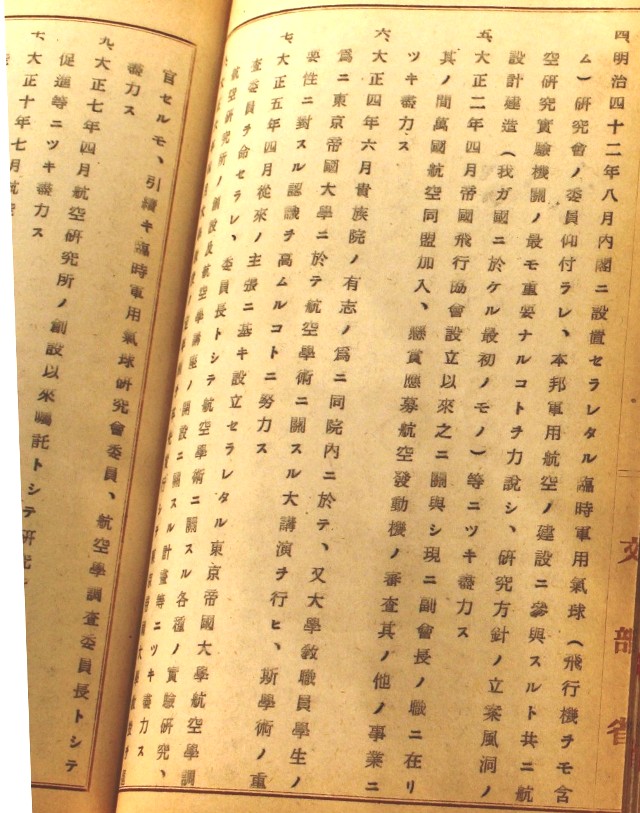 四、明治四十二年八月內閣ニ設置セラレタル臨時軍用氣球（飛行機チモ含
ム）硏究會ノ委員仰付ラレ、本邦軍用航空ノ建設ニ參與スルト共ニ航
空硏究實驗機關ノ最モ重要ナルコトチ力說シ、硏究方針ノ立案風洞ノ
設計建造（我ガ國ニ於ケル最初ノモノ）等ニツキ盡力ス
五、大正二年四月帝國飛行協會設立以來之ニ關與シ現ニ副會長ノ職ニ在リ
其ノ間萬國航空同盟加入、懸賞應募航空發動機ノ審査其ノ他ノ事業ニ
ツキ盡力ス
六、大正四年六月貴族院ノ有志ノ爲ニ同院內ニ於テ、又大學敎職員學生ノ
爲ニ東京帝國大學ニ於テ航空學術ニ關スル大講演チ行ヒ、斯學術ノ重
要性ニ對スル認識チ高ムルコトニ努力ス
七、大正五年四月從來ノ主張ニ基キ設立セラレタル東京帝國大學航空學調
査委員チ命セラレ、委員長トシテ航空學術ニ關スル各種ノ實驗硏究、
航空硏究所ノ創設及航空學講座ノ開設ニ關スル計畫等ニツキ盡力ス
官セルモ、引續キ臨時軍用氣球硏究會委員、航空學調査委員長トシテ
盡力ス
九、大正七年四月航空硏究所ノ創設以來囑託トシテ硏究
促進等ニツキ盡力ス
十、大正十年七月航空
文部省